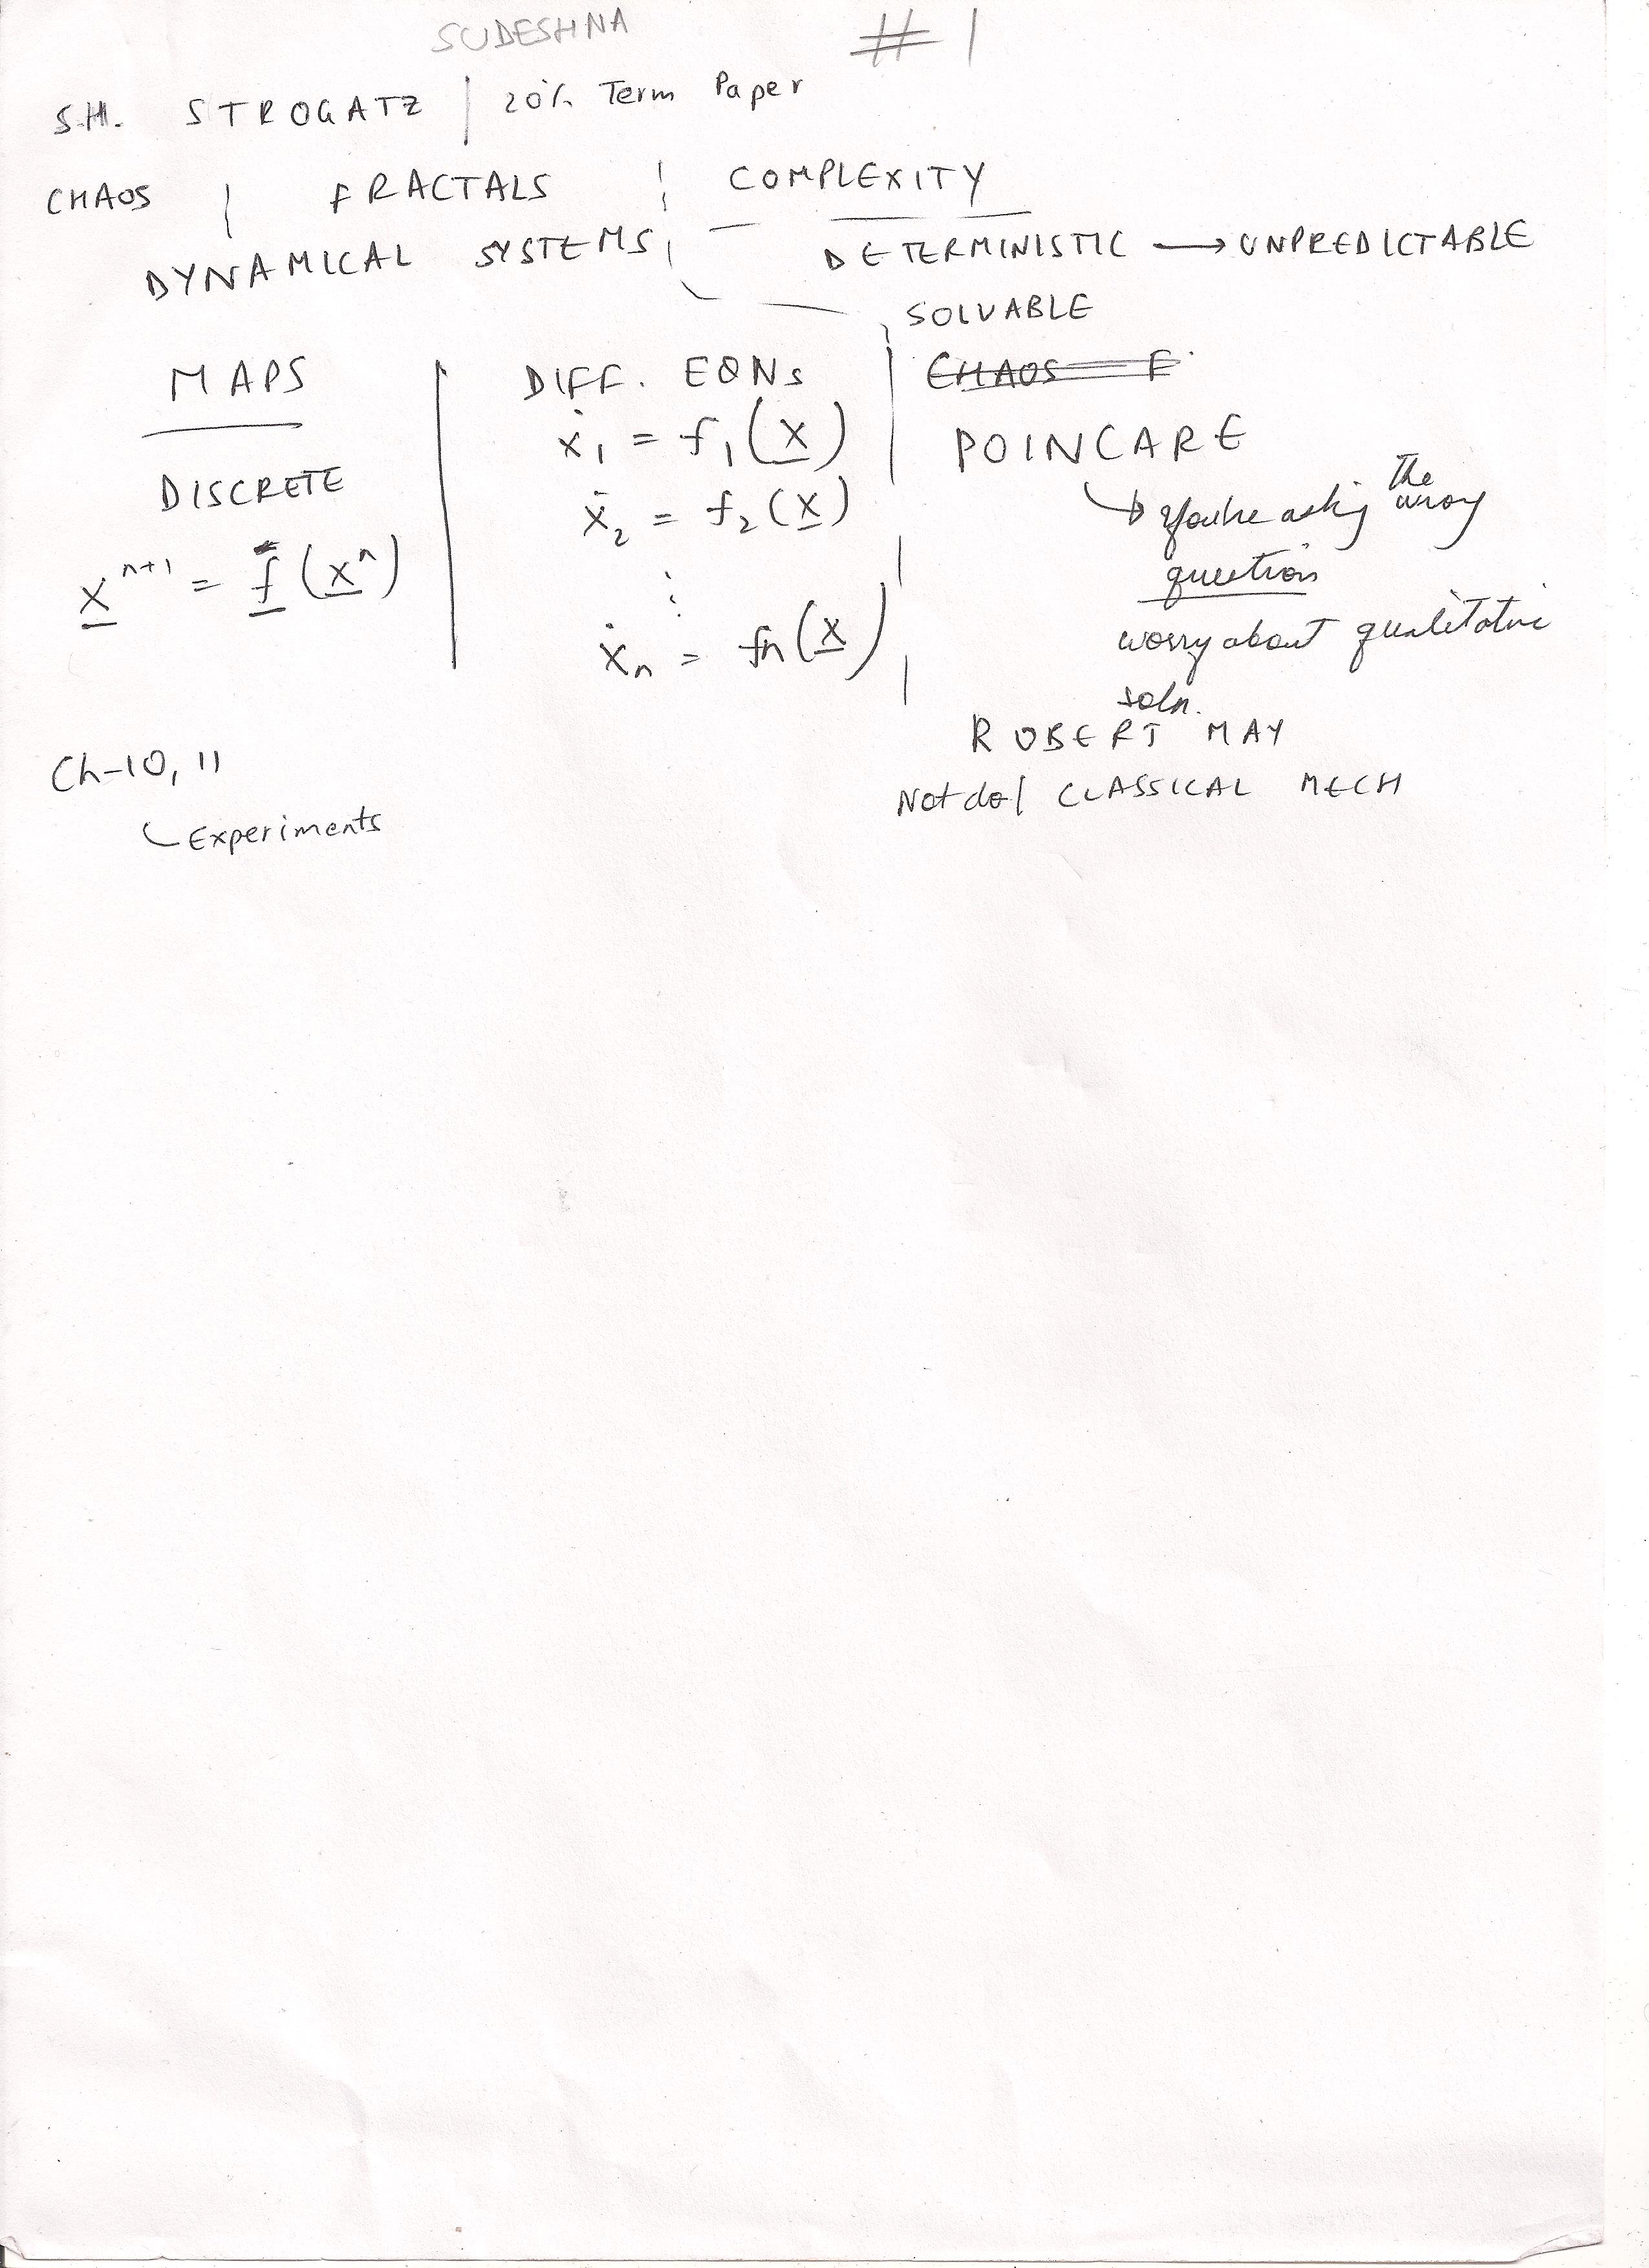 SUDESHNA #1
S.H. STROGATZ | 20% Term Paper
CHAOS | FRACTALS | COMPLEXITY
DYNAMICAL SYSTEMS
DETERMINISTIC → UNPREDICTABLE
SOLVABLE
MAPS
DISCRETE
x̲ⁿ⁺¹ = f̲(x̲ⁿ)
DIFF. EQNs
ẋ₁ = f₁(x̲)
ẋ₂ = f₂(x̲)
⋮
ẋₙ = fn(x̲)
CHAOS F
POINCARE
↳ You're asking the wrong
question
worry about qualitative
soln.
ROBERT MAY
CLASSICAL MECH
Ch-10, 11
Experiments